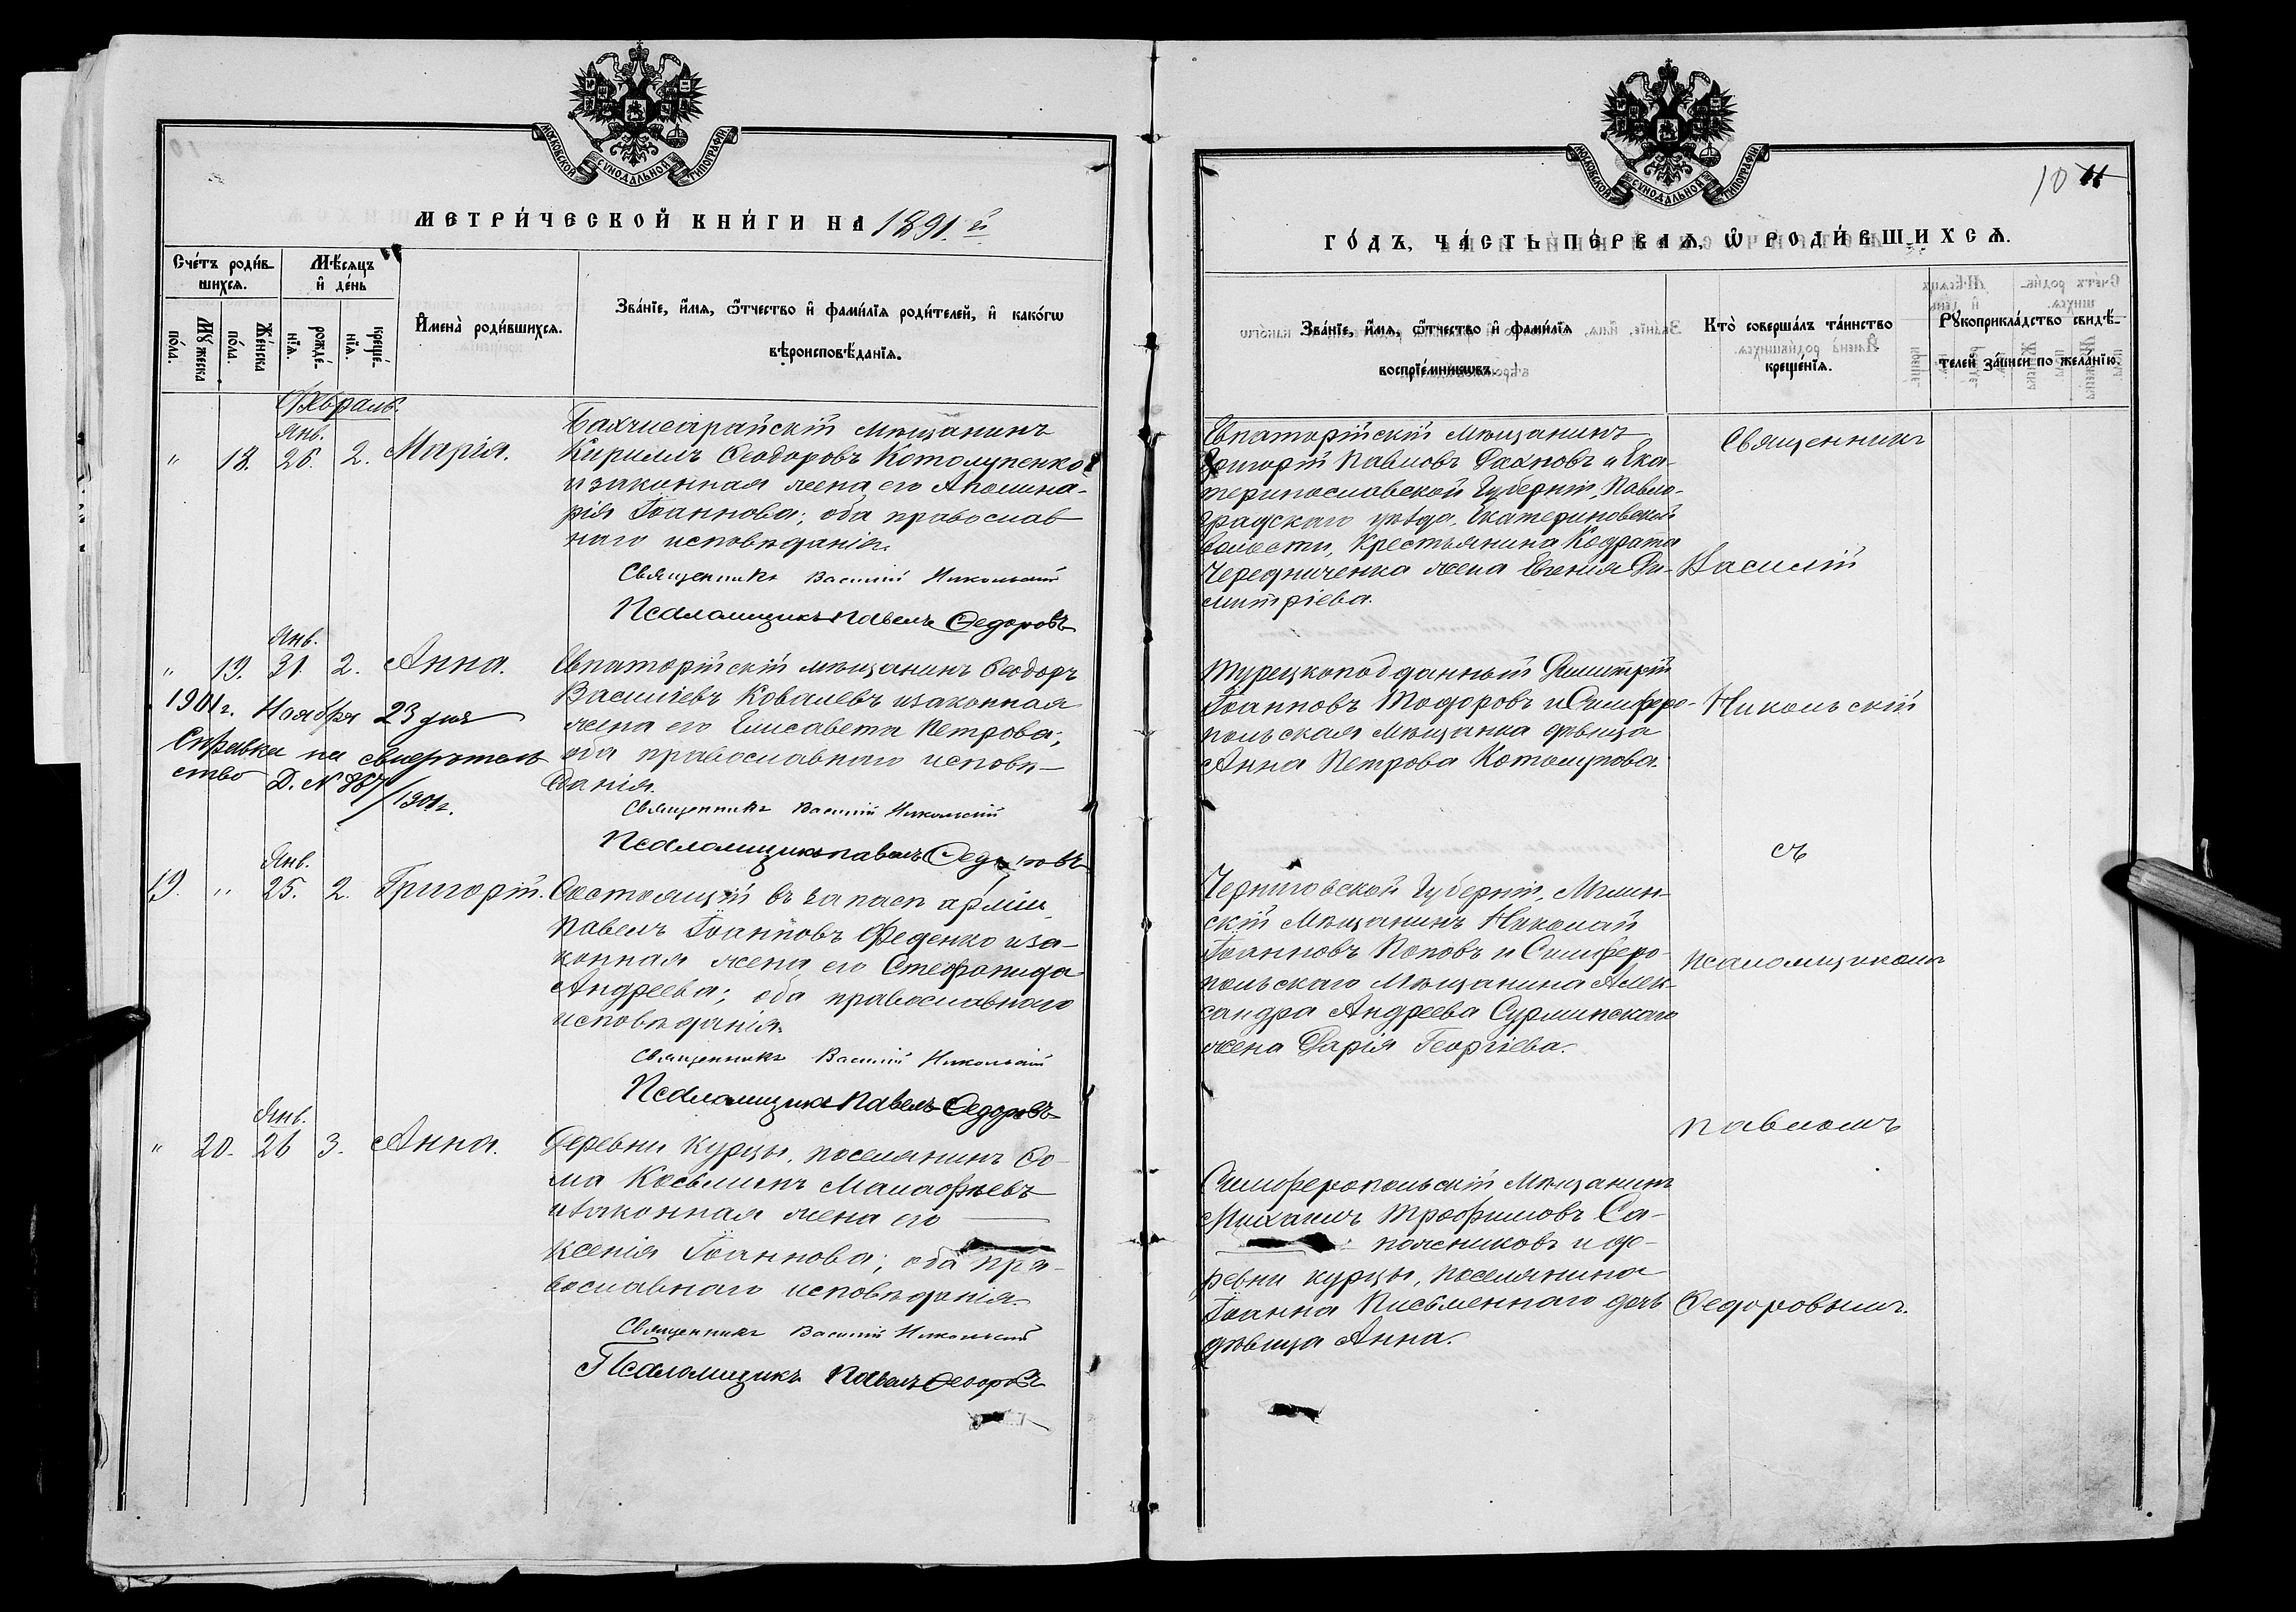 МОСКОВСКОЙ СѴНОДАЛЬНОЙ ТИПОГРАФІИ
МЕТРИ́ЧЕСКОЙ КНИ́ГИ НА 1891.й
Сче́тъ роди́в-
шихся.
Мѣ́сяцъ
и де́нь
Мꙋжеска
по́ла.
Же́нска
по́ла.
рожде́-
нїѧ.
креще́-
нїѧ.
И҆мена̀ роди́вшихсѧ.
Зва́нїе, и҆́мѧ, ѻ҆́тчество и҆ фами́лїѧ роди́телей, и҆ како́гѡ
вѣроисповѣ́данїѧ.
Февраль.
Янв.
" 18. 26. 2. Марія.
Бахчисарайскій мѣщанинъ
Кириллъ Ѳеодоровъ Котолупенко
и законная жена его Аполина-
рія Іоаннова; оба православ
наго исповѣданія.
Священникъ Василій Никольскій
Псаломщикъ Павелъ Ѳедоровъ
Янв.
" 19. 31. 2. Анна.
Евпаторійскій мѣщанинъ Ѳеодоръ
Василіевъ Ковалевъ и законная
жена его Елисавета Петрова;
оба православнаго исповѣ-
данія.
1901 г. Ноября 23 дня
Справка на свидѣтель
ство Д. №
/1901 г.
Священникъ Василій Никольскій
Псаломщикъ Павелъ Ѳедоровъ
Янв.
19. " 25. 2. Григорій.
Состоящій въ запасѣ арміи
Павелъ Іоанновъ Феденко и за-
конная жена его Стефанида
Андреева; оба православнаго
исповѣданія.
Священникъ Василій Никольскій
Псаломщикъ Павелъ Ѳедоровъ
Янв.
" 20. 26 3. Анна.
Деревни Курцы, поселянинъ Ѳо-
ма Косьминъ Малафѣевъ
и законная жена его
Ксенія Іоаннова; оба пра-
вославнаго исповѣданія.
Священникъ Василій Никольскій
Псаломщикъ Павелъ Ѳедоровъ
МОСКОВСКОЙ СѴНОДАЛЬНОЙ ТИПОГРАФІИ
10 11
ГО́ДЪ, ЧА́СТЬ ПЕ́РВАѦ, Ѽ РОДИ́ВШИХСѦ.
Зва́нїе, и҆́мѧ, ѻ҆́тчество и҆ фами́лїѧ
воспрїе́мникѡвъ.
Кто̀ соверша́лъ та́инство
креще́нїѧ.
Рꙋкоприкла́дство свидѣ́-
телей за́писи по жела́нїю.
Евпаторійскій мѣщанинъ
Григорій Павловъ Дахновъ и Ека-
теринославской Губерніи, Павло-
градскаго уѣзда, Екатериновской
волости, крестьянина Кодрата
Чередниченка жена Евгенія Ди-
митріева.
Турецкоподданный Димитрій
Іоанновъ Тодоровъ и Симферо-
польская мѣщанка дѣвица
Анна Петрова Котолупова.
Черниговской Губерніи, Мглин-
скій мѣщанинъ Николай
Іоанновъ Поповъ и Симферо-
польскаго мѣщанина Алек-
сандра Андреева Сурминскаго
жена Дарія Георгіева.
Симферопольскій мѣщанинъ
Михаилъ Трофимовъ Са-
поясниковъ и де-
ревни Курцы, поселянина
Іоанна Письменнаго дочь
дѣвица Анна.
Священникъ
Василій
Никольскій
съ
псаломщикомъ
Павломъ
Ѳедоровымъ.